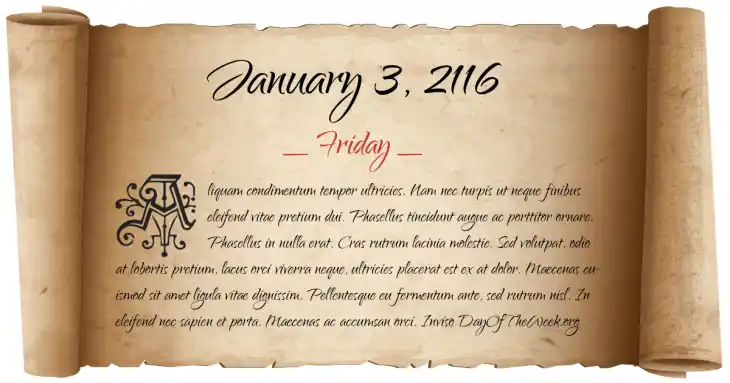 January 3, 2116
_ Friday _
Aliquam condimentum tempor ultricies. Nam nec turpis ut neque finibus
eleifend vitae pretium dui. Phasellus tincidunt augue ac porttitor ornare.
Phasellus in nulla erat. Cras rutrum lacinia molestie. Sed volutpat, odio
at lobortis pretium, lacus orci viverra neque, ultricies placerat est ex at dolor. Maecenas eu-
ismod sit amet ligula vitae dignissim. Pellentesque eu fermentum ante, sed rutrum nisl. In
eleifend nec sapien et porta. Maecenas ac accumsan orci. Inviso DayOfTheWeek.org